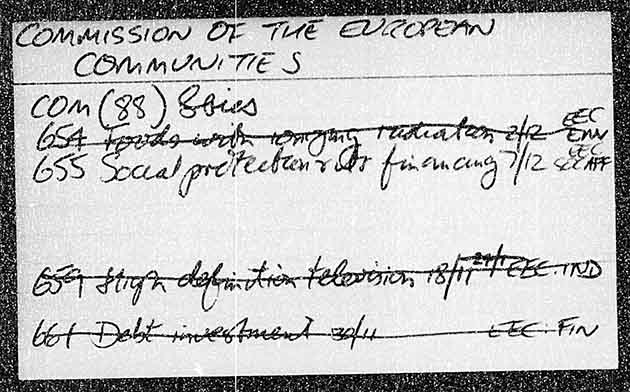 COMMISSION OF THE EUROPEAN
COMMUNITIES
COM (88) Series
EEC
654 Foods with ionizing radiation 2/12 ENV
EEC
655 Social protection & its financing 7/12 SOC AFF
29/11
659 High definition television 18/11 EEC. IND
661 Debt investment 30/11 EEC. FIN